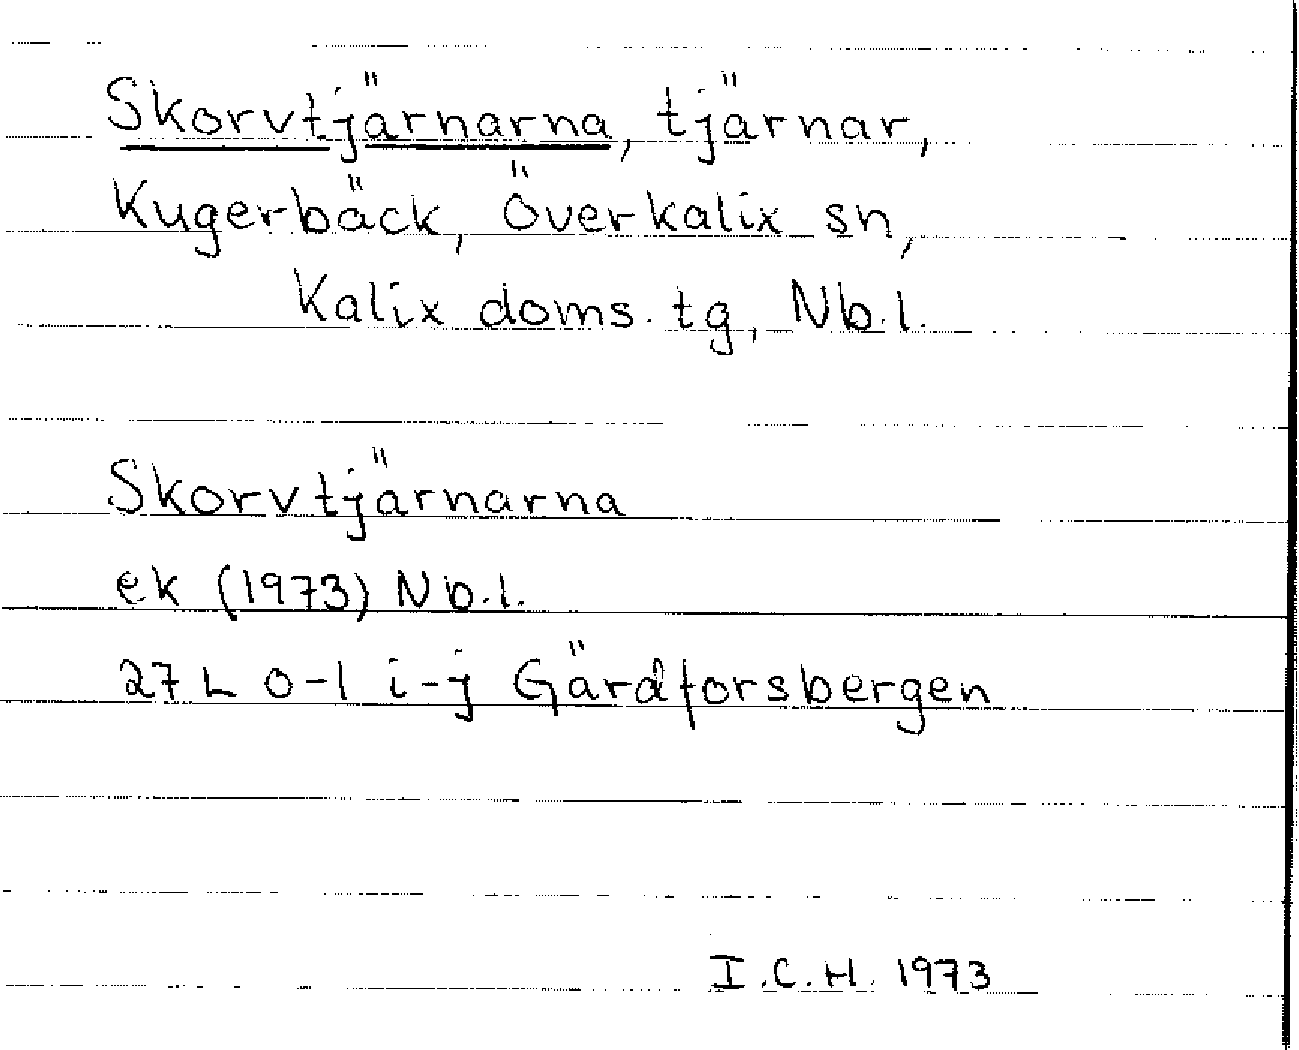 Skorvtjärnarna, tjärnar,
Kugerbäck, Överkalix sn,
Kalix doms. tg, Nb.l.
Skorvtjärnarna
ek (1973) Nb.l.
27 L 0-1 i-j Gärdforsbergen
I.C.H. 1973